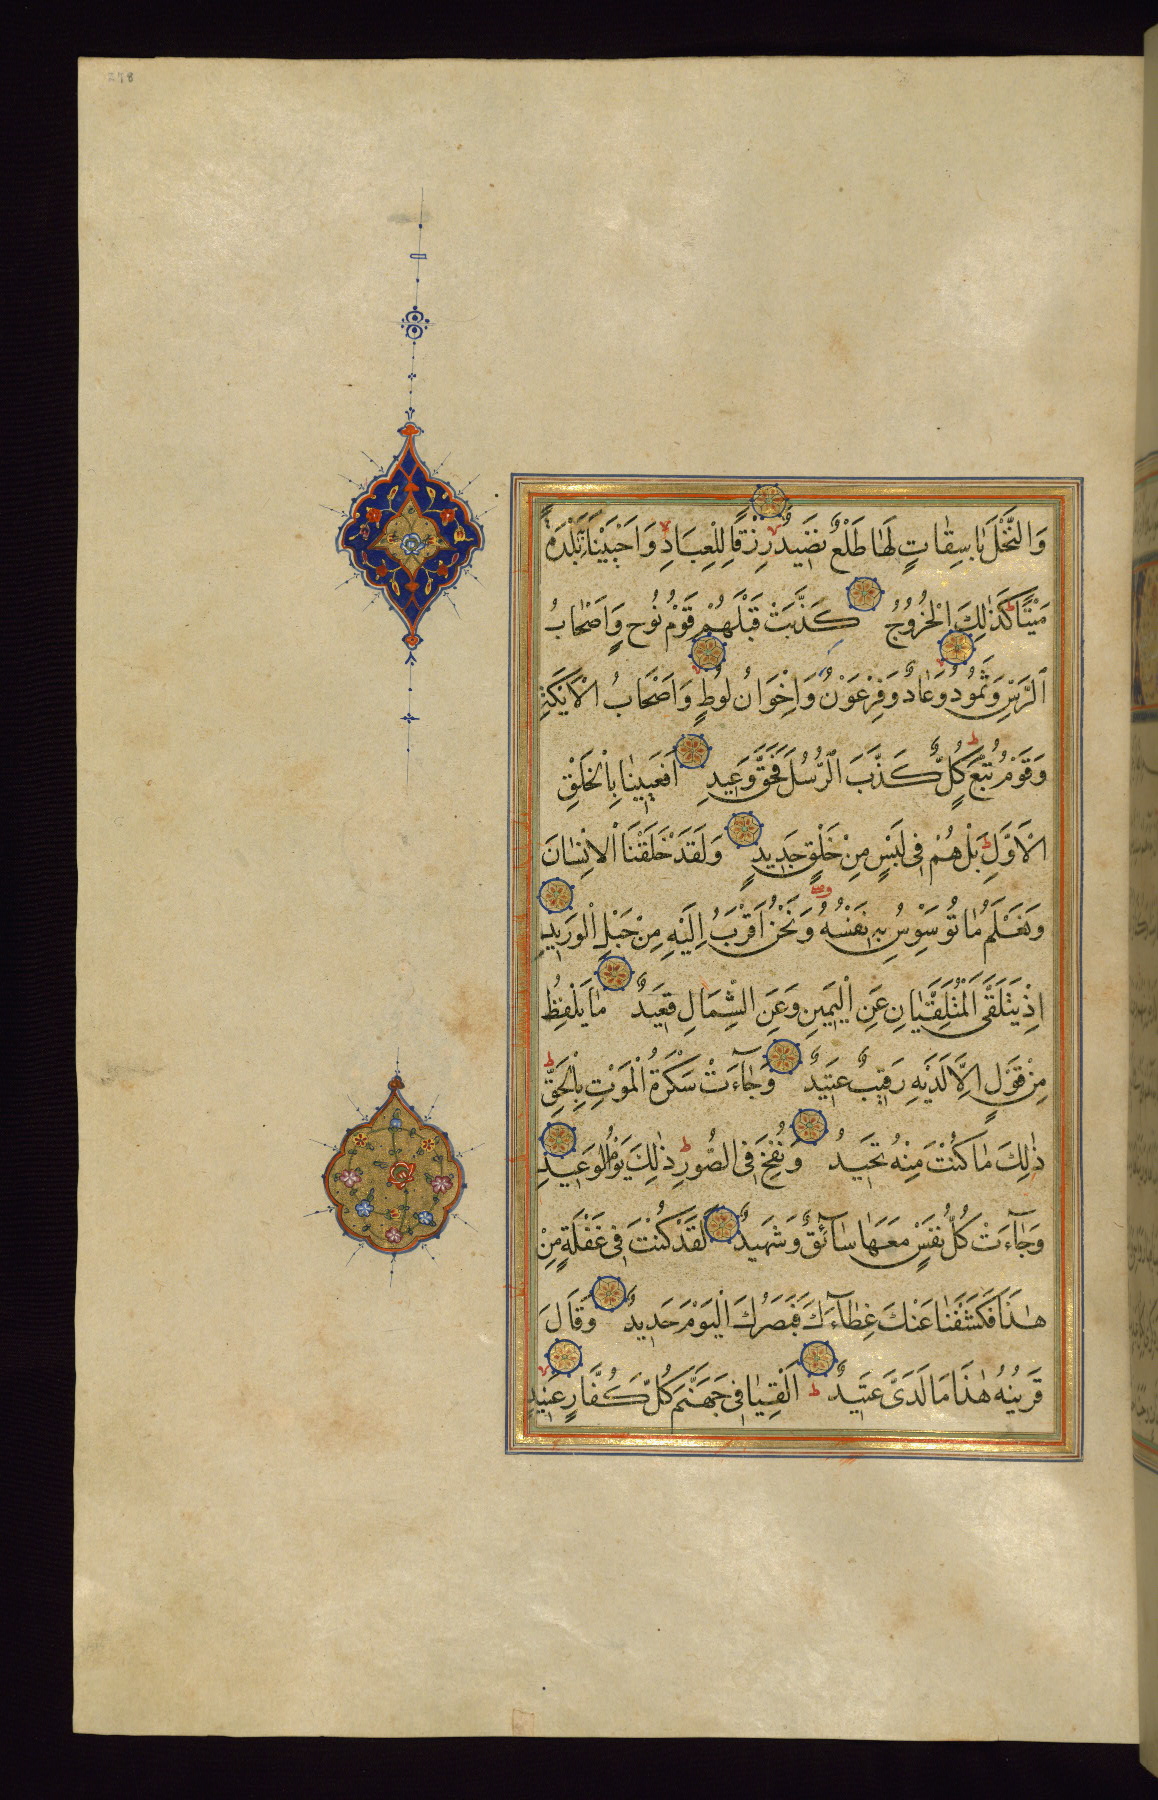 278
وَالنَّخْلَ بَاسِقَاتٍ لَهَا طَلْعٌ نَضِيدٌ رِزْقًا لِلْعِبَادِ وَاَحْيَيْنَا بِهِ بَلْدَةً
مَيْتًا كَذٰلِكَ الْخُرُوجُ كَذَّبَتْ قَبْلَهُمْ قَوْمُ نُوحٍ وَاَصْحَابُ
الرَّسِّ وَثَمُودُ وَعَادٌ وَفِرْعَوْنُ وَاِخْوَانُ لُوطٍ وَاَصْحَابُ الْاَيْكَةِ
وَقَوْمُ تُبَّعٍ كُلٌّ كَذَّبَ الرُّسُلَ فَحَقَّ وَعِيدِ اَفَعَيِينَا بِالْخَلْقِ
الْاَوَّلِ بَلْ هُمْ فِى لَبْسٍ مِنْ خَلْقٍ جَدِيدٍ وَلَقَدْ خَلَقْنَا الْاِنْسَانَ
وَنَعْلَمُ مَا تُوَسْوِسُ بِهِ نَفْسُهُ وَنَحْنُ اَقْرَبُ اِلَيْهِ مِنْ حَبْلِ الْوَرِيدِ
اِذْ يَتَلَقَّى الْمُتَلَقِّيَانِ عَنِ الْيَمِينِ وَعَنِ الشِّمَالِ قَعِيدٌ مَا يَلْفِظُ
مِنْ قَوْلٍ اِلَّا لَدَيْهِ رَقِيبٌ عَتِيدٌ وَجَآءَتْ سَكْرَةُ الْمَوْتِ بِالْحَقِّ
ذٰلِكَ مَا كُنْتَ مِنْهُ تَحِيدُ وَنُفِخَ فِى الصُّورِ ذٰلِكَ يَوْمُ الْوَعِيدِ
وَجَآءَتْ كُلُّ نَفْسٍ مَعَهَا سَآئِقٌ وَشَهِيدٌ لَقَدْ كُنْتَ فِى غَفْلَةٍ مِنْ
هٰذَا فَكَشَفْنَا عَنْكَ غِطَآءَكَ فَبَصَرُكَ الْيَوْمَ حَدِيدٌ وَقَالَ
قَرِينُهُ هٰذَا مَا لَدَىَّ عَتِيدٌ اَلْقِيَا فِى جَهَنَّمَ كُلَّ كَفَّارٍ عَنِيدٍ